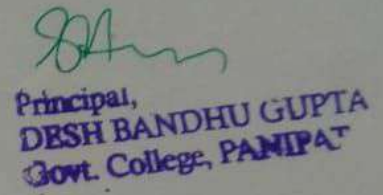 Principal,
DESH BANDHU GUPTA
Govt. College, PANIPAT